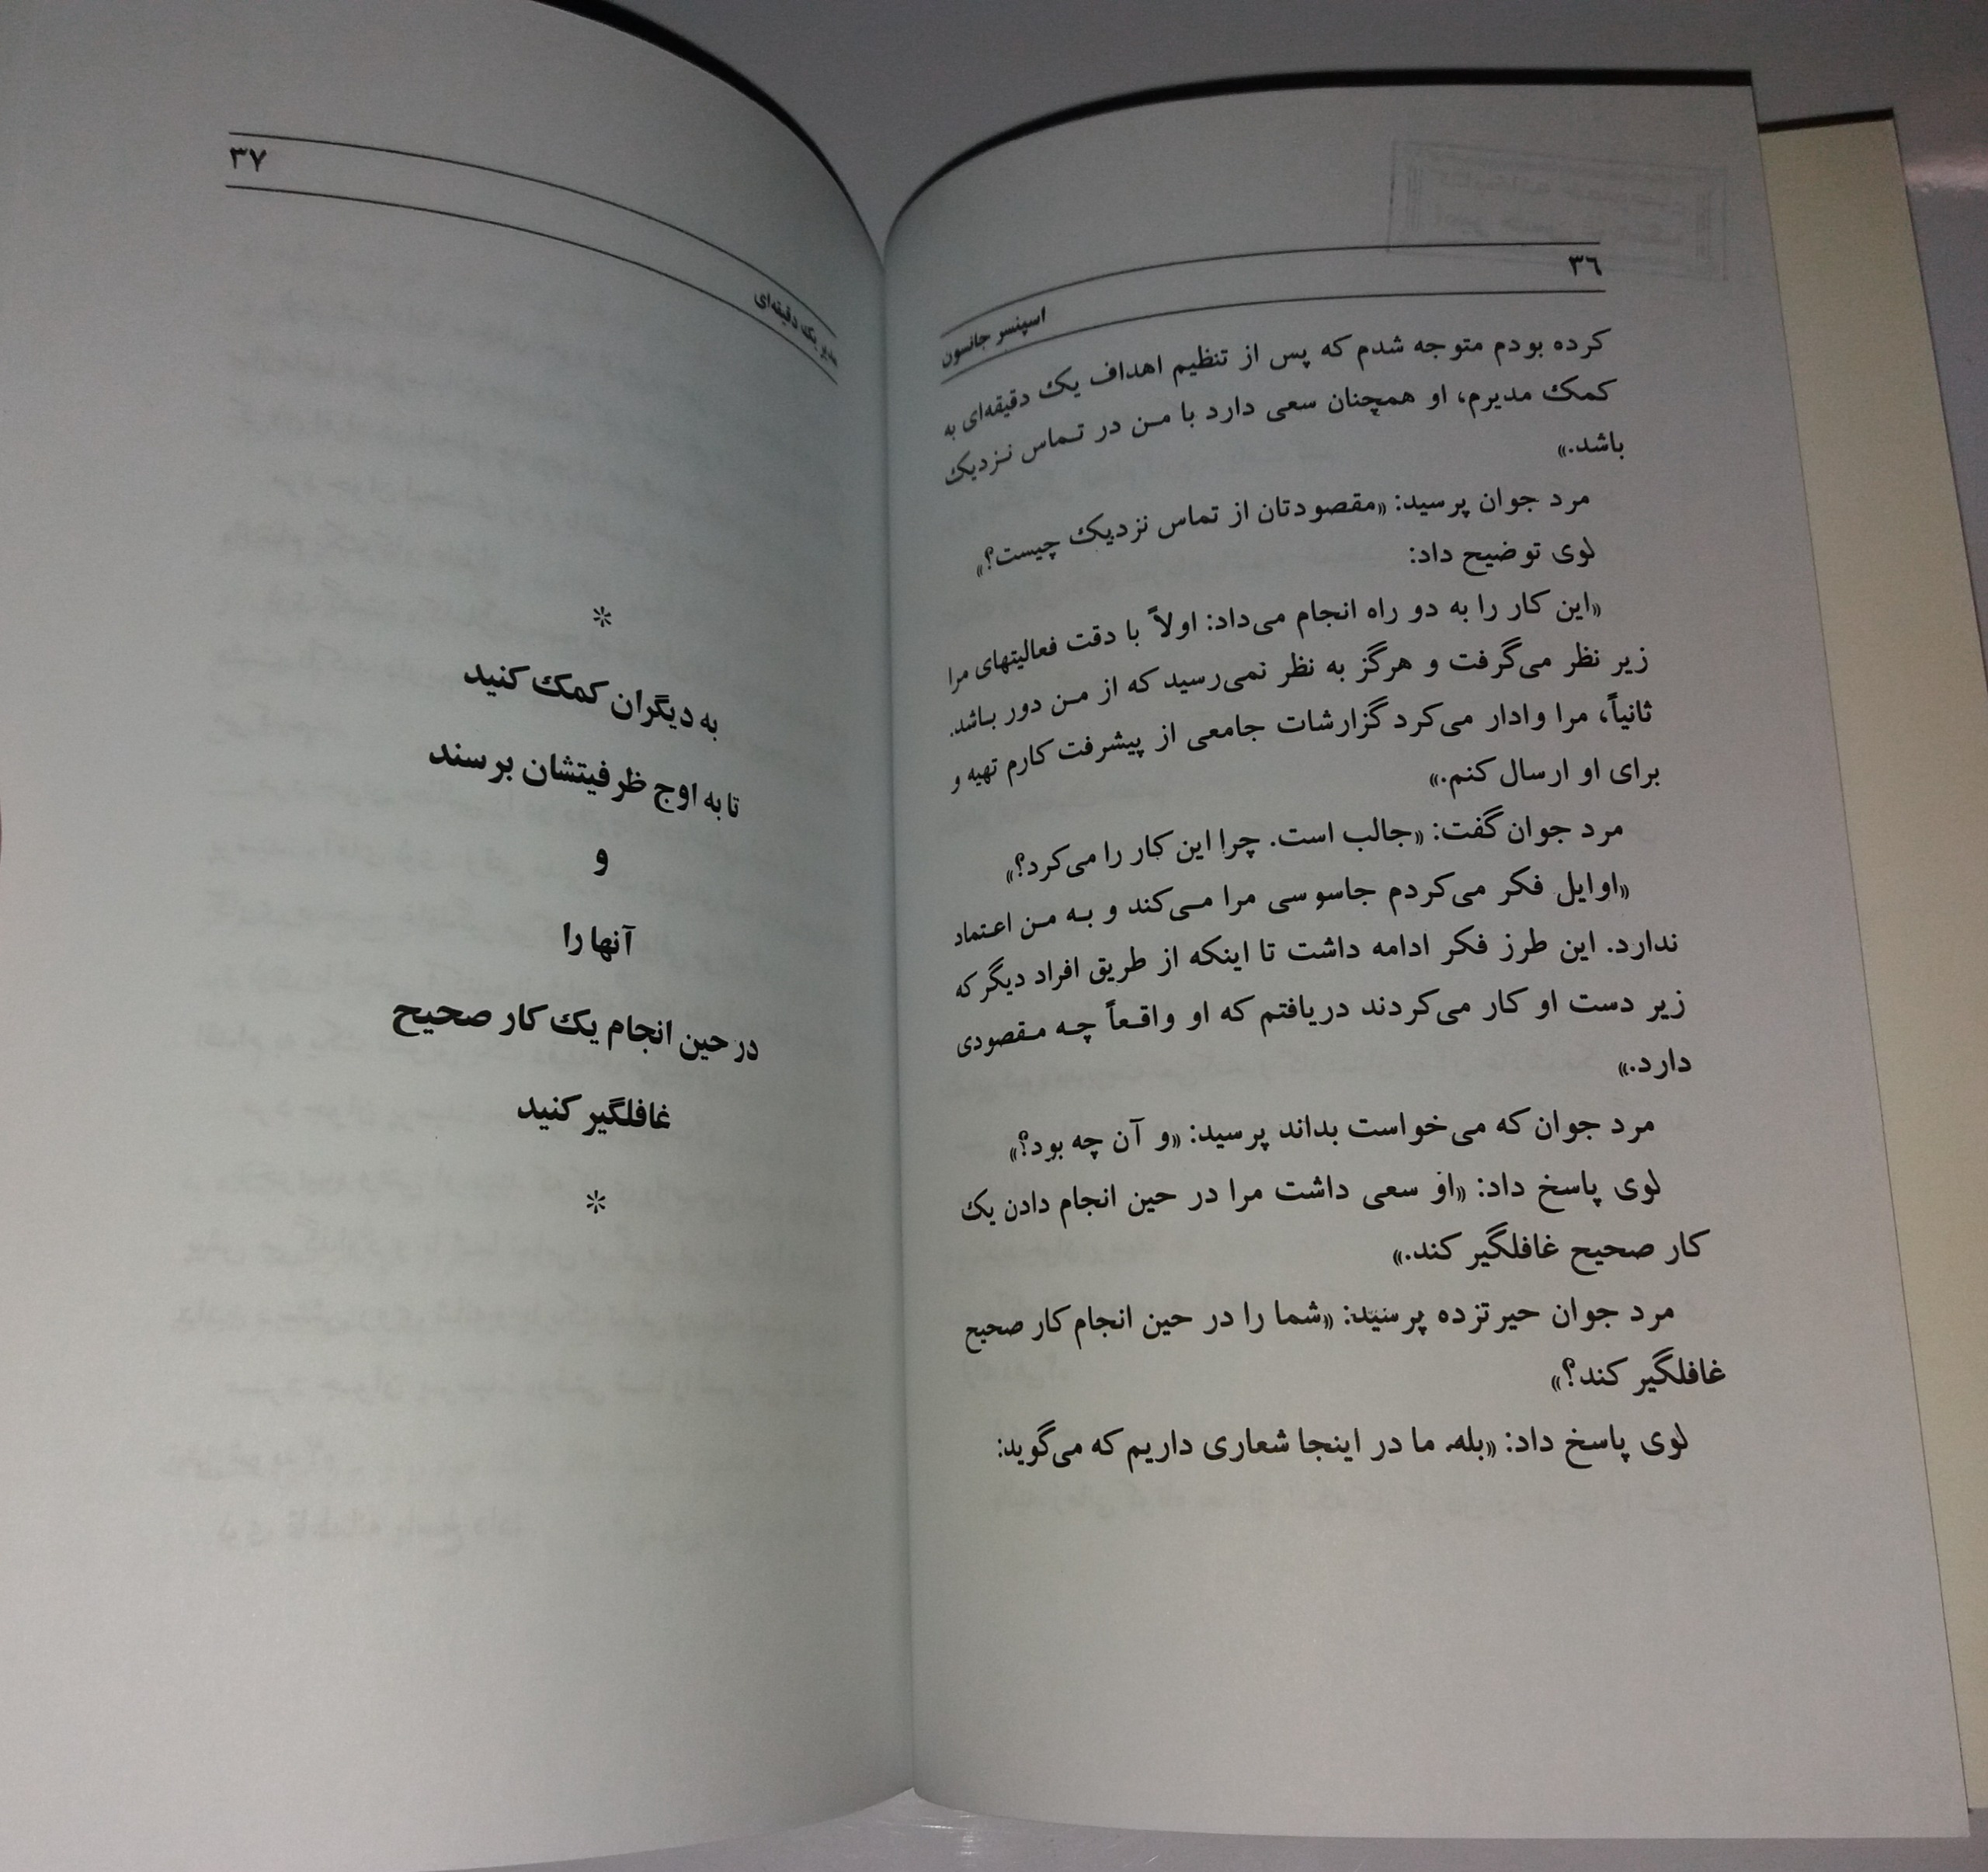 ۳۶
اسپنسر جانسون
کرده بودم متوجه شدم که پس از تنظیم اهداف یک دقیقه‌ای به
کمک مدیرم، او همچنان سعی دارد با من در تماس نزدیک
باشد.»
مرد جوان پرسید: «مقصودتان از تماس نزدیک چیست؟»
لوی توضیح داد:
«این کار را به دو راه انجام می‌داد: اولاً با دقت فعالیتهای مرا
زیر نظر می‌گرفت و هرگز به نظر نمی‌رسید که از من دور باشد.
ثانیاً، مرا وادار می‌کرد گزارشات جامعی از پیشرفت کارم تهیه و
برای او ارسال کنم.»
مرد جوان گفت: «جالب است. چرا این کار را می‌کرد؟»
«اوایل فکر می‌کردم جاسوسی مرا می‌کند و به من اعتماد
ندارد. این طرز فکر ادامه داشت تا اینکه از طریق افراد دیگر که
زیر دست او کار می‌کردند دریافتم که او واقعاً چه مقصودی
دارد.»
مرد جوان که می‌خواست بداند پرسید: «و آن چه بود؟»
لوی پاسخ داد: «او سعی داشت مرا در حین انجام دادن یک
کار صحیح غافلگیر کند.»
مرد جوان حیرتزده پرسید: «شما را در حین انجام کار صحیح
غافلگیر کند؟»
لوی پاسخ داد: «بله، ما در اینجا شعاری داریم که می‌گوید:
مدیر یک دقیقه‌ای
۳۷
*
به دیگران کمک کنید
تا به اوج ظرفیتشان برسند
و
آنها را
در حین انجام یک کار صحیح
غافلگیر کنید
*